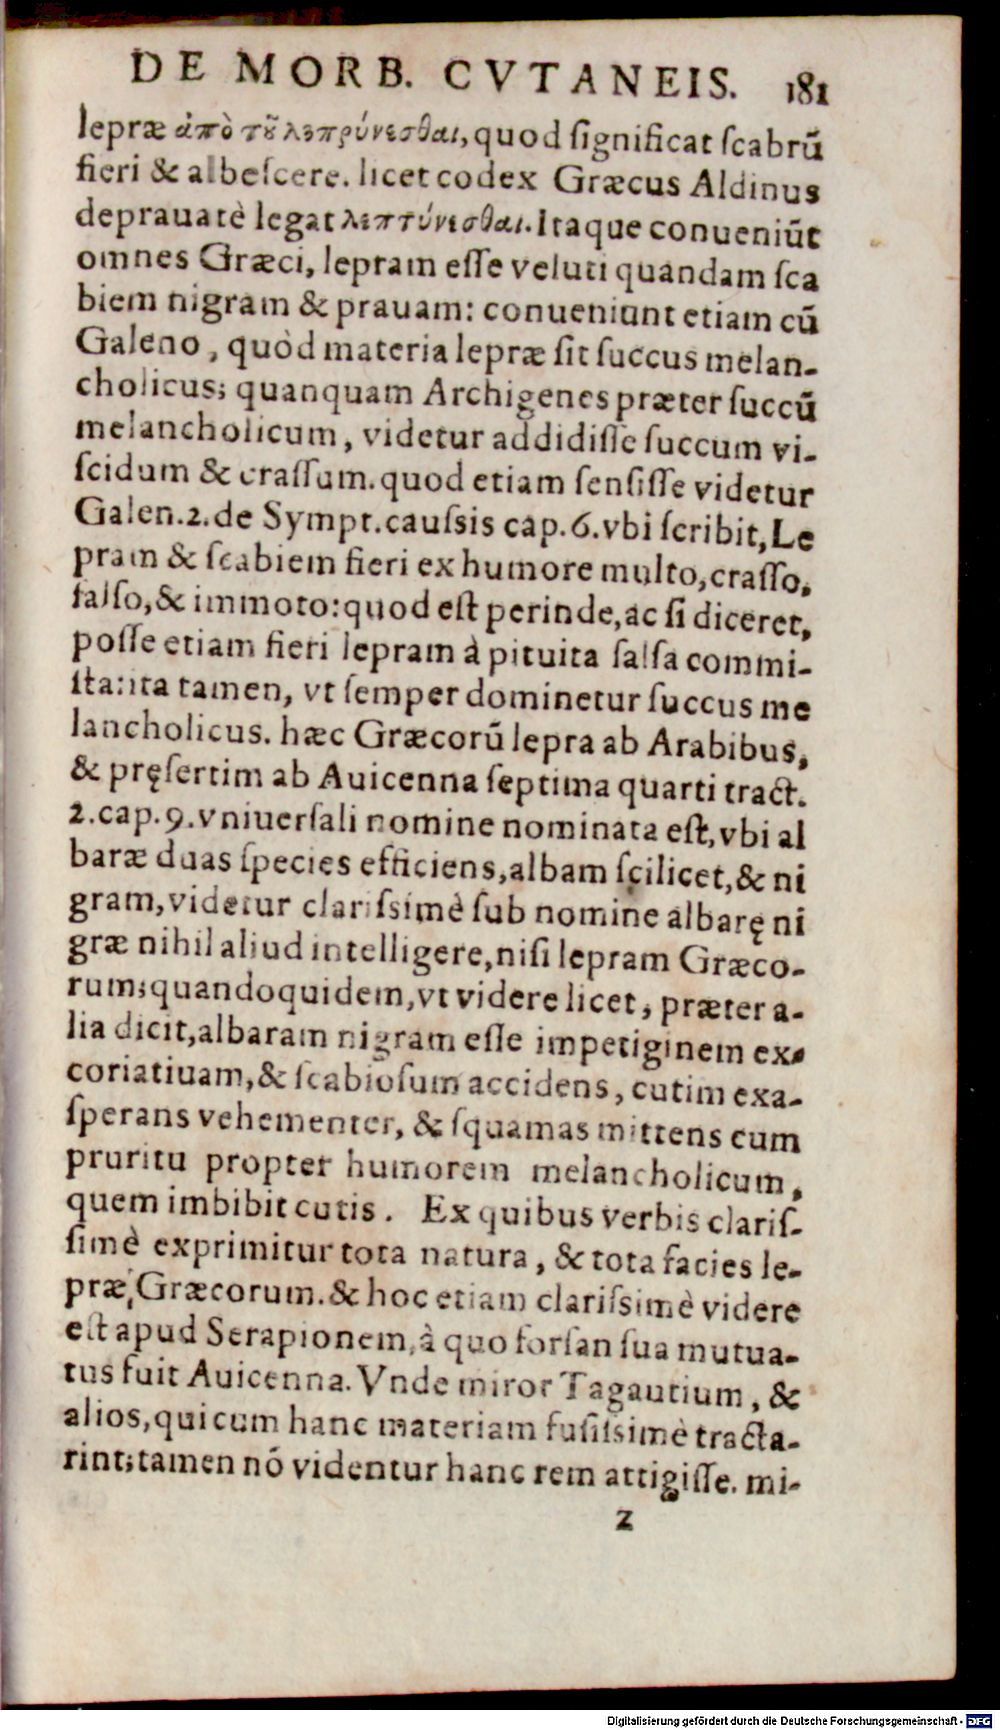 DE MORB. CVTANEIS. 181
lepræ ἀπὸ τȣ͂ λεπρύνεσθαι, quod ſignificat ſcabrũ
fieri & albeſcere. licet codex Græcus Aldinus
deprauatè legat λεπτύνεσθαι. Itaque conueniũt
omnes Græci, lepram eſſe veluti quandam ſca
biem nigram & prauam: conueniunt etiam cũ
Galeno, quòd materia lepræ ſit ſuccus melan-
cholicus; quanquam Archigenes præter ſuccũ
melancholicum, videtur addidiſſe ſuccum vi-
ſcidum & craſſum. quod etiam ſenſiſſe videtur
Galen. 2. de Sympt. cauſsis cap. 6. vbi ſcribit, Le
pram & ſcabiem fieri ex humore multo, craſſo,
ſalſo, & immoto: quod eſt perinde, ac ſi diceret,
poſſe etiam fieri lepram à pituita ſalſa commi-
ſta: ita tamen, vt ſemper dominetur ſuccus me
lancholicus. hæc Græcorũ lepra ab Arabibus,
& pręſertim ab Auicenna ſeptima quarti tract.
2. cap. 9. vniuerſali nomine nominata eſt, vbi al
baræ duas ſpecies efficiens, albam ſcilicet, & ni
gram, videtur clariſsimè ſub nomine albarę ni
græ nihil aliud intelligere, niſi lepram Græco-
rum; quandoquidem, vt videre licet, præter a-
lia dicit, albaram nigram eſſe impetiginem ex-
coriatiuam, & ſcabioſum accidens, cutim exa-
ſperans vehementer, & ſquamas mittens cum
pruritu propter humorem melancholicum,
quem imbibit cutis. Ex quibus verbis clariſ-
ſimè exprimitur tota natura, & tota facies le-
præ Græcorum. & hoc etiam clariſsimè videre
eſt apud Serapionem, à quo forſan ſua mutua-
tus fuit Auicenna. Vnde miror Tagautium, &
alios, qui cum hanc materiam fuſiſsimè tracta-
rint; tamen nõ videntur hanc rem attigiſſe. mi-
z
Digitalisierung gefördert durch die Deutsche Forschungsgemeinschaft - DFG